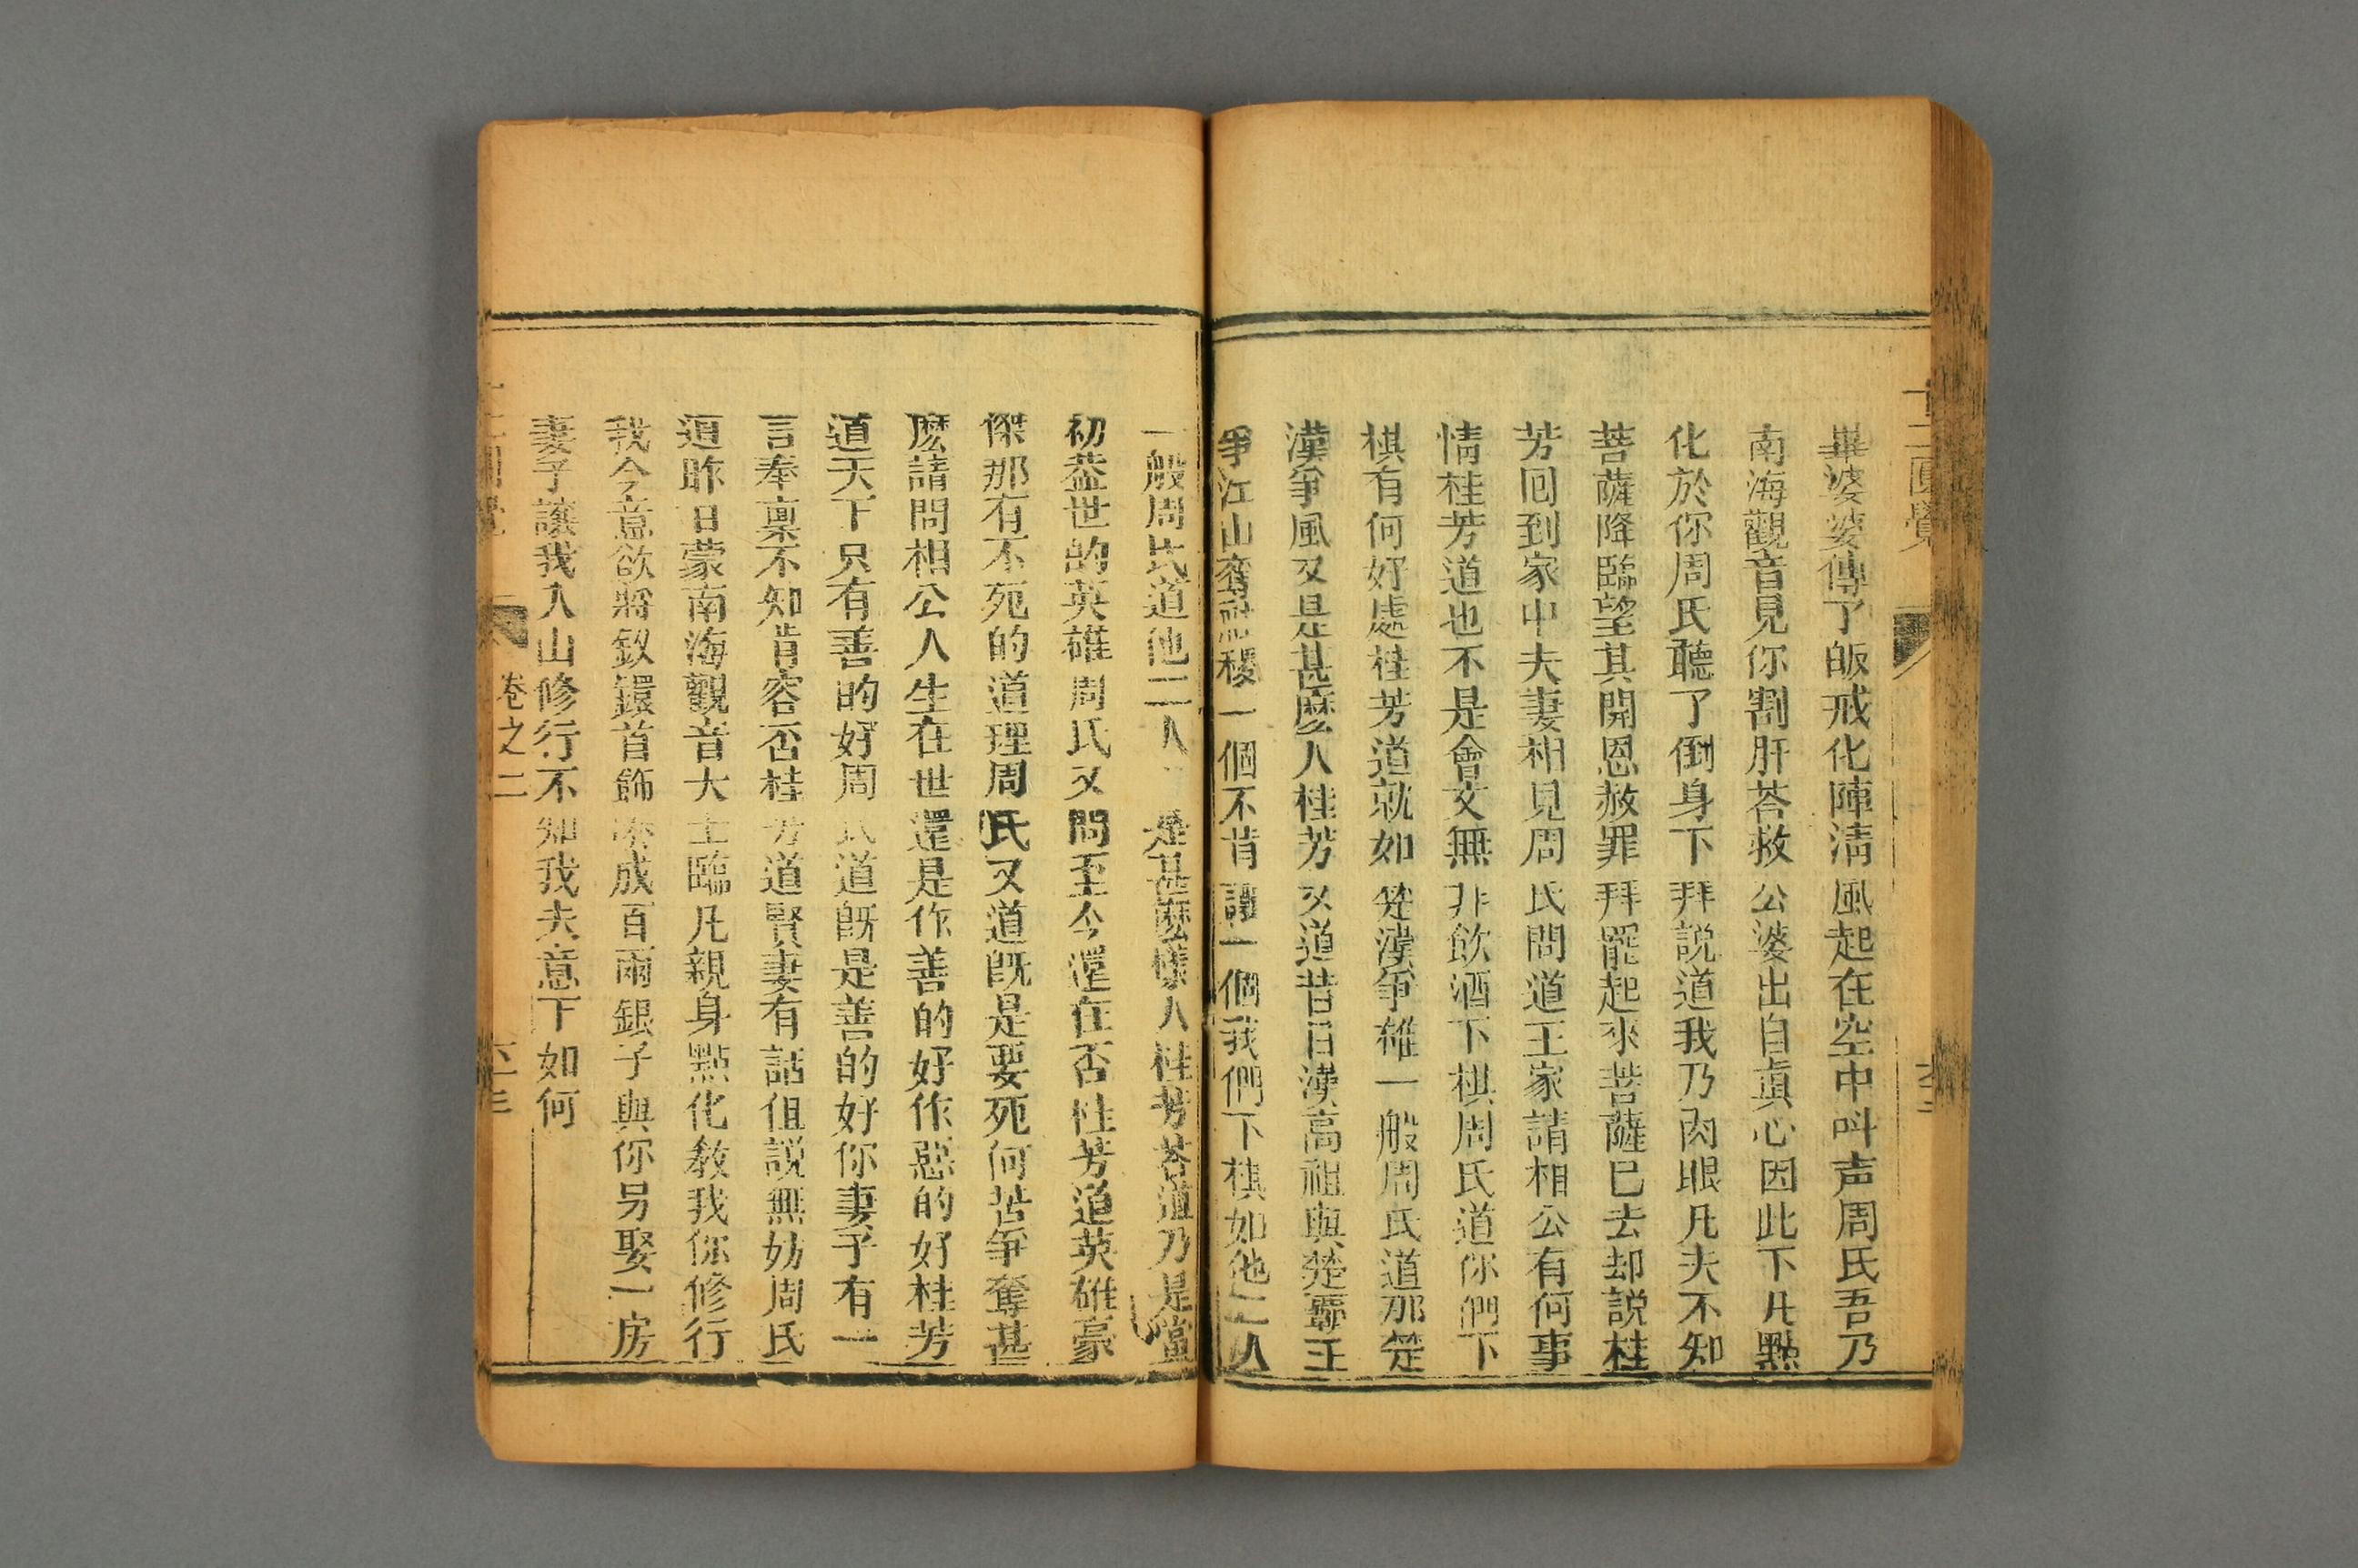 十二圓覺
畢婆婆傳了皈戒化陣淸風起在空中叫声周氏吾乃
南海觀音見你割肝荅救公婆出自眞心因此下凡點
化於你周氏聽了倒身下拜説道我乃肉眼凡夫不知
菩薩降臨望其開恩赦罪拜罷起來菩薩巳去却説桂
芳回到家中夫妻相見周氏問道王家請相公有何事
情桂芳道也不是會文無非飲酒下棋周氏道你們下
棋有何好處桂芳道就如楚漢爭雄一般周氏道那楚
漢爭風又是甚麽人桂芳又道昔日漢高祖與楚覇王
爭江山奪社稷一個不肯讓一個我們下棋如他二人
一般周氏道他二人是甚麽樣人桂芳荅道乃是當
初葢世的英雄周氏又問至今還在否桂芳道英雄豪
傑那有不死的道理周氏又道旣是要死何苦爭奪甚
麽請問相公人生在世還是作善的好作惡的好桂芳
道天下只有善的好周氏道旣是善的好你妻子有一
言奉禀不知肯容否桂芳道賢妻有話但説無妨周氏
道昨日蒙南海觀音大士臨凡親身點化教我你修行
我今意欲將釵鐶首飾湊成百兩銀子與你另娶一房
妻子讓我入山修行不知我夫意下如何
卷之二